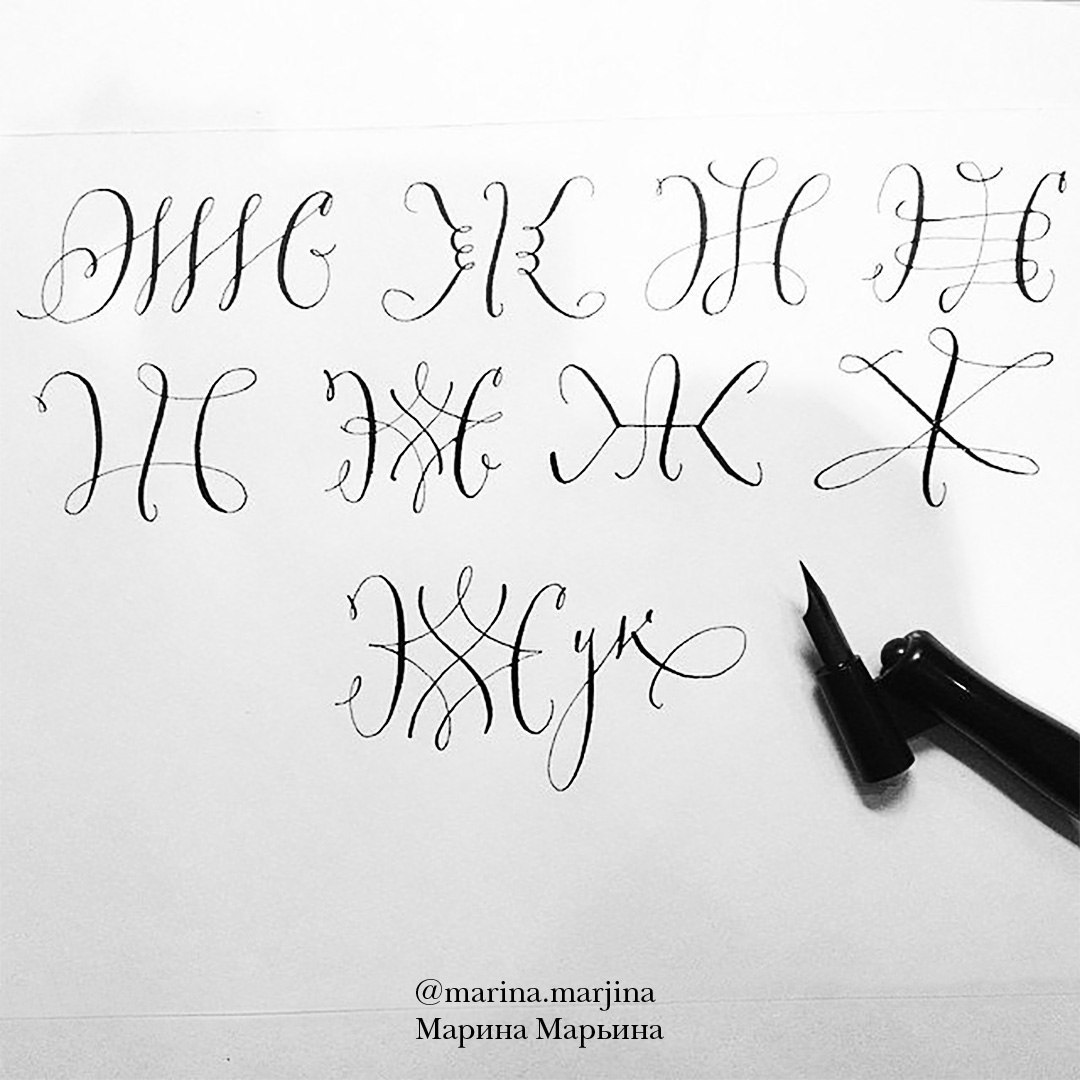 Ж Ж Ж Ж
Ж Ж Ж Ж
Жук
@marina.marjina
Марина Марьина